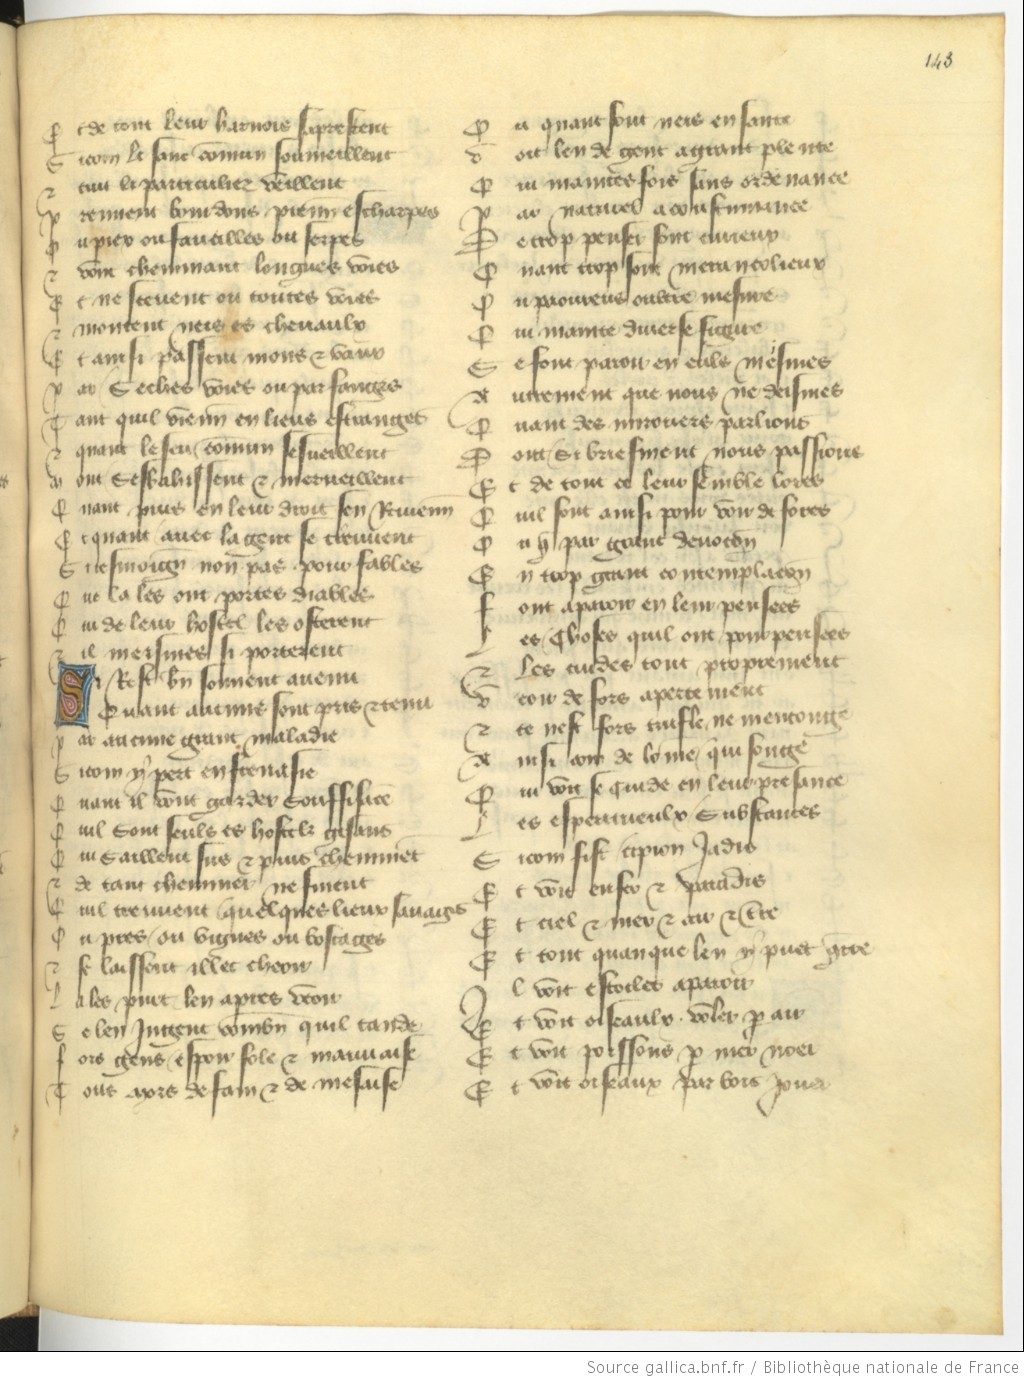 143
E t de tout leur harnois saprestent
S icom li sanc comun someillent
⁊ tuit li particulier veillent
P rennent bourdons prenn escharpes
O u piex ou faucilles ou serpes
⁊ vont cheminant longues voies
E t ne scevent ou toutes voies
⁊ montent neis es chevaulx
E t ainsi passent mons ⁊ vaux
P ar seches voies ou par fanges
T ant quil vienn en lieus estranges
⁊ quant le sen comun sesveillent
M out sesbahissent ⁊ merveillent
Q uant puis en leur droit sen revienn
E t quant avec la gent se treuvent
S i tesmoign non pas pour fables
Q ue la les ont portes diables
Q ui de leur hostel les osterent
⁊ il meismes si porterent
Si rest bn souvent avenu
Quant aucuns sont pris ⁊ tenu
P ar aucune grant maladie
S icom y pert en frenasie
Q uant il nont gardes souffisace
Q uil sont seuls es hostelz gisans
Q ui saillent sus ⁊ puis cheminet
⁊ de tant cheminer ne finent
Q uil treuvent quelques lieux sauvages
O u pres ou vignes ou boscages
⁊ se laissent illec cheoir
L a les puet len apres veoir
S e len
F ors gens espoir fole ⁊ mauvaise
T ous mors de fain ⁊ de mesaise
O u quant sont neis en sante
V oit len de gent a grant plente
Q ui maintes fois sans ordenance
P ar naturel acoustumance
D e trop penser sont curieux
Q uant trop sont melancolieux
O u paoureus oultre mesure
Q ui mainte diverse figure
S e font paroir en euls mesmes
A utrement que nous ne deismes
Q uant des mirouers parlions
D ont si briefment nous passions
E t de tout ce leur semble lores
Q uil sont ainsi pour voir defores
O u q par grant devocon
E n trop grant contemplacon
F ont aparoir en leur pensees
L es choses quil ont pourpensees
⁊ les cuides tout proprement
V eoir defors apertement
⁊ ce nest fors trufle ne mensonge
A insi com de lome qui songe
Q ui voit se cuide en leur presance
L es esperitueulx substances
S icom fist cipion jadis
E t voit enfer ⁊ paradis
E t ciel ⁊ mer ⁊ air ⁊ tre
E t tout quanque len y puet qrre
I l voit estoiles aparoir
E t voit oiseaulx voler p air
E t voit poissons p mer noer
E t voit oiseaux par bois jouer
Source gallica.bnf.fr / Bibliothèque nationale de France